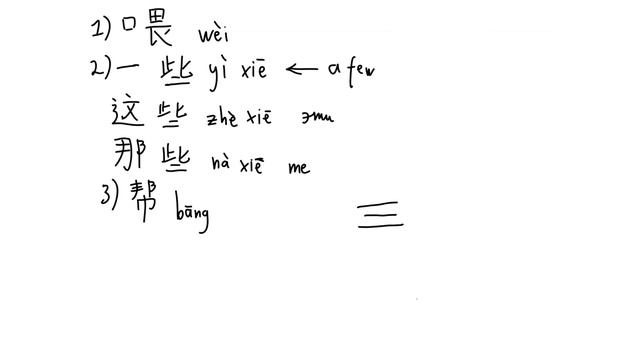 1) 喂 wèi
2) 一些 yì xiē ← a few
这些 zhè xiē эти
那些 nà xiē те
3) 帮 bāng
三